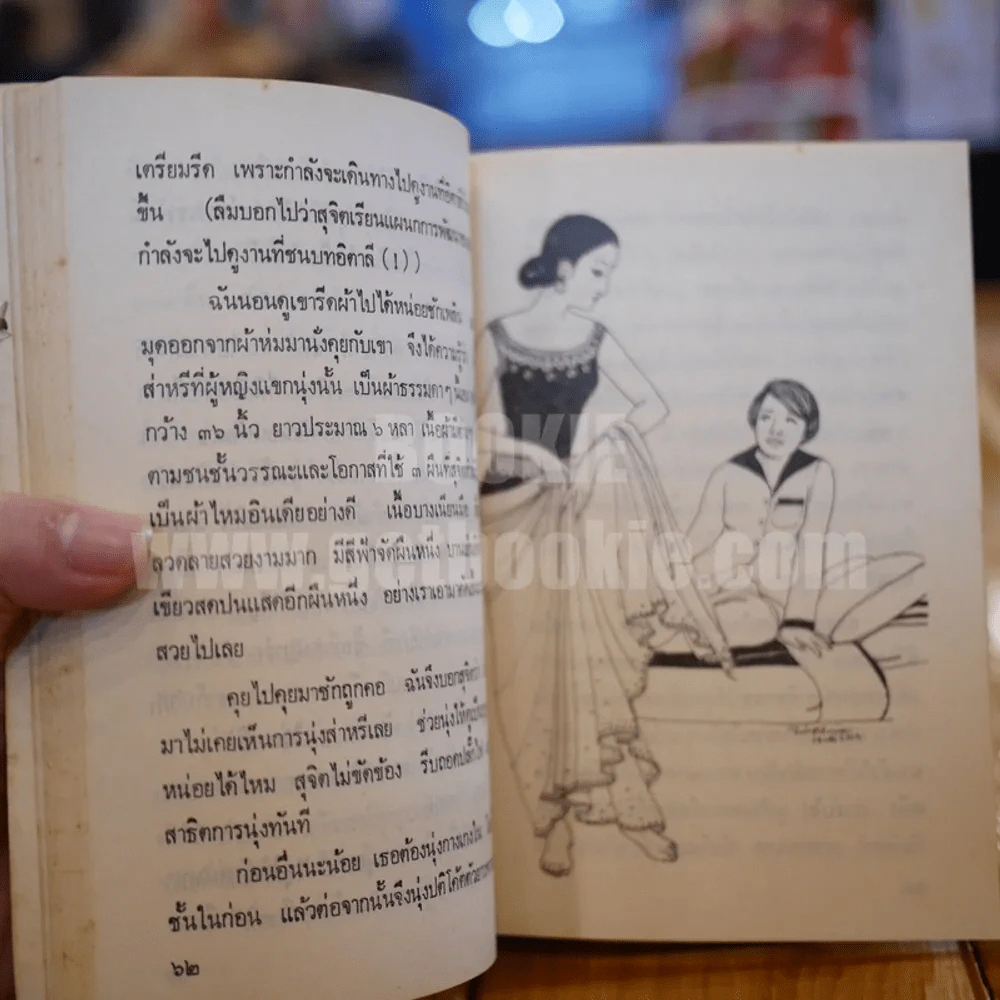 เตรียมรีด เพราะกำลังจะเดินทางไปดูงานที่อิตาลี
ขึ้น (ลืมบอกไปว่าสุจิตเรียนแผนกการพัฒนา
กำลังจะไปดูงานที่ชนบทอิตาลี (!))
ฉันนอนดูเขารีดผ้าไปได้หน่อยชักเพลิน
มุดออกจากผ้าห่มมานั่งคุยกับเขา จึงได้ความรู้
ส่าหรีที่ผู้หญิงแขกนุ่งนั้น เป็นผ้าธรรมดาๆ
กว้าง ๓๖ นิ้ว ยาวประมาณ ๖ หลา เนื้อผ้า
ตามชนชั้นวรรณะและโอกาสที่ใช้ ๓ ผืนที่
เป็นผ้าไหมอินเดียอย่างดี เนื้อบางเนียน
ลวดลายสวยงามมาก มีสีฟ้าจัดผืนหนึ่ง
เขียวสดปนแสดอีกผืนหนึ่ง อย่างเราเอามาตัด
สวยไปเลย
คุยไปคุยมาชักถูกคอ ฉันจึงบอกสุจิต
มาไม่เคยเห็นการนุ่งส่าหรีเลย ช่วยนุ่งให้ดู
หน่อยได้ไหม สุจิตไม่ขัดข้อง รีบถอด
สาธิตการนุ่งทันที
ก่อนอื่นนะน้อย เธอต้องนุ่งกางเกงใน
ชั้นในก่อน แล้วต่อจากนั้นจึงนุ่งปติโค้ต
๖๒
BOOKIE
www.getbookie.com